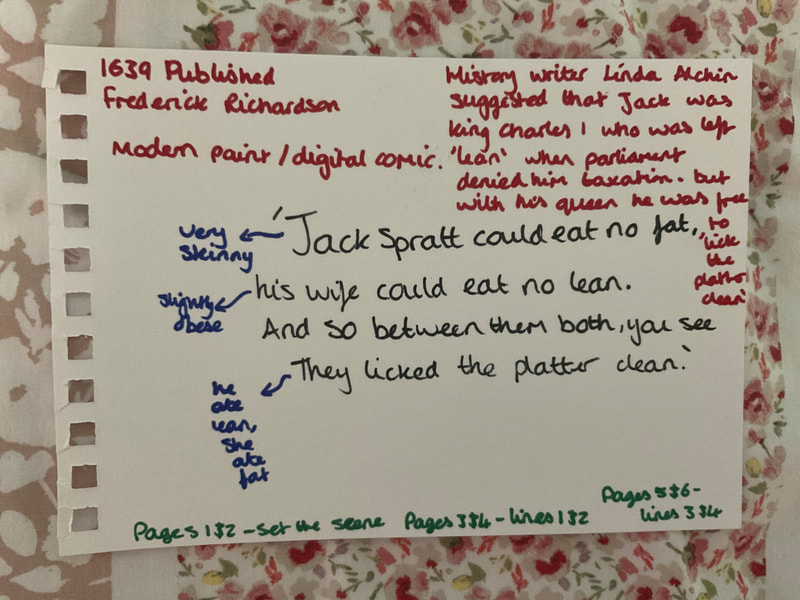 1639 Published
Frederick Richardson
Modern paint / digital comic.
History writer Linda Alchin
suggested that Jack was
king Charles 1 who was left
'lean' when parliament
denied him taxation. but
with his queen he was free
to
lick
the
platter
clean'
'Jack Spratt could eat no fat,
his wife could eat no lean.
And so between them both, you see
They licked the platter clean.'
very
skinny
slightly
obese
he
ate
lean,
she
ate
fat
Pages 1&2 - set the scene
Pages 3&4 - lines 1&2
Pages 5&6 -
lines 3&4